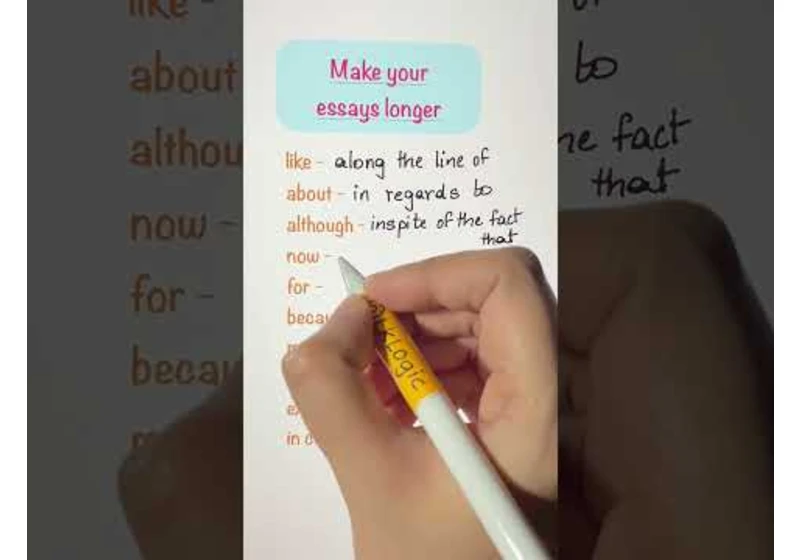 Make your
essays longer
like - along the line of
about - in regards to
although - inspite of the fact
that
now -
for -